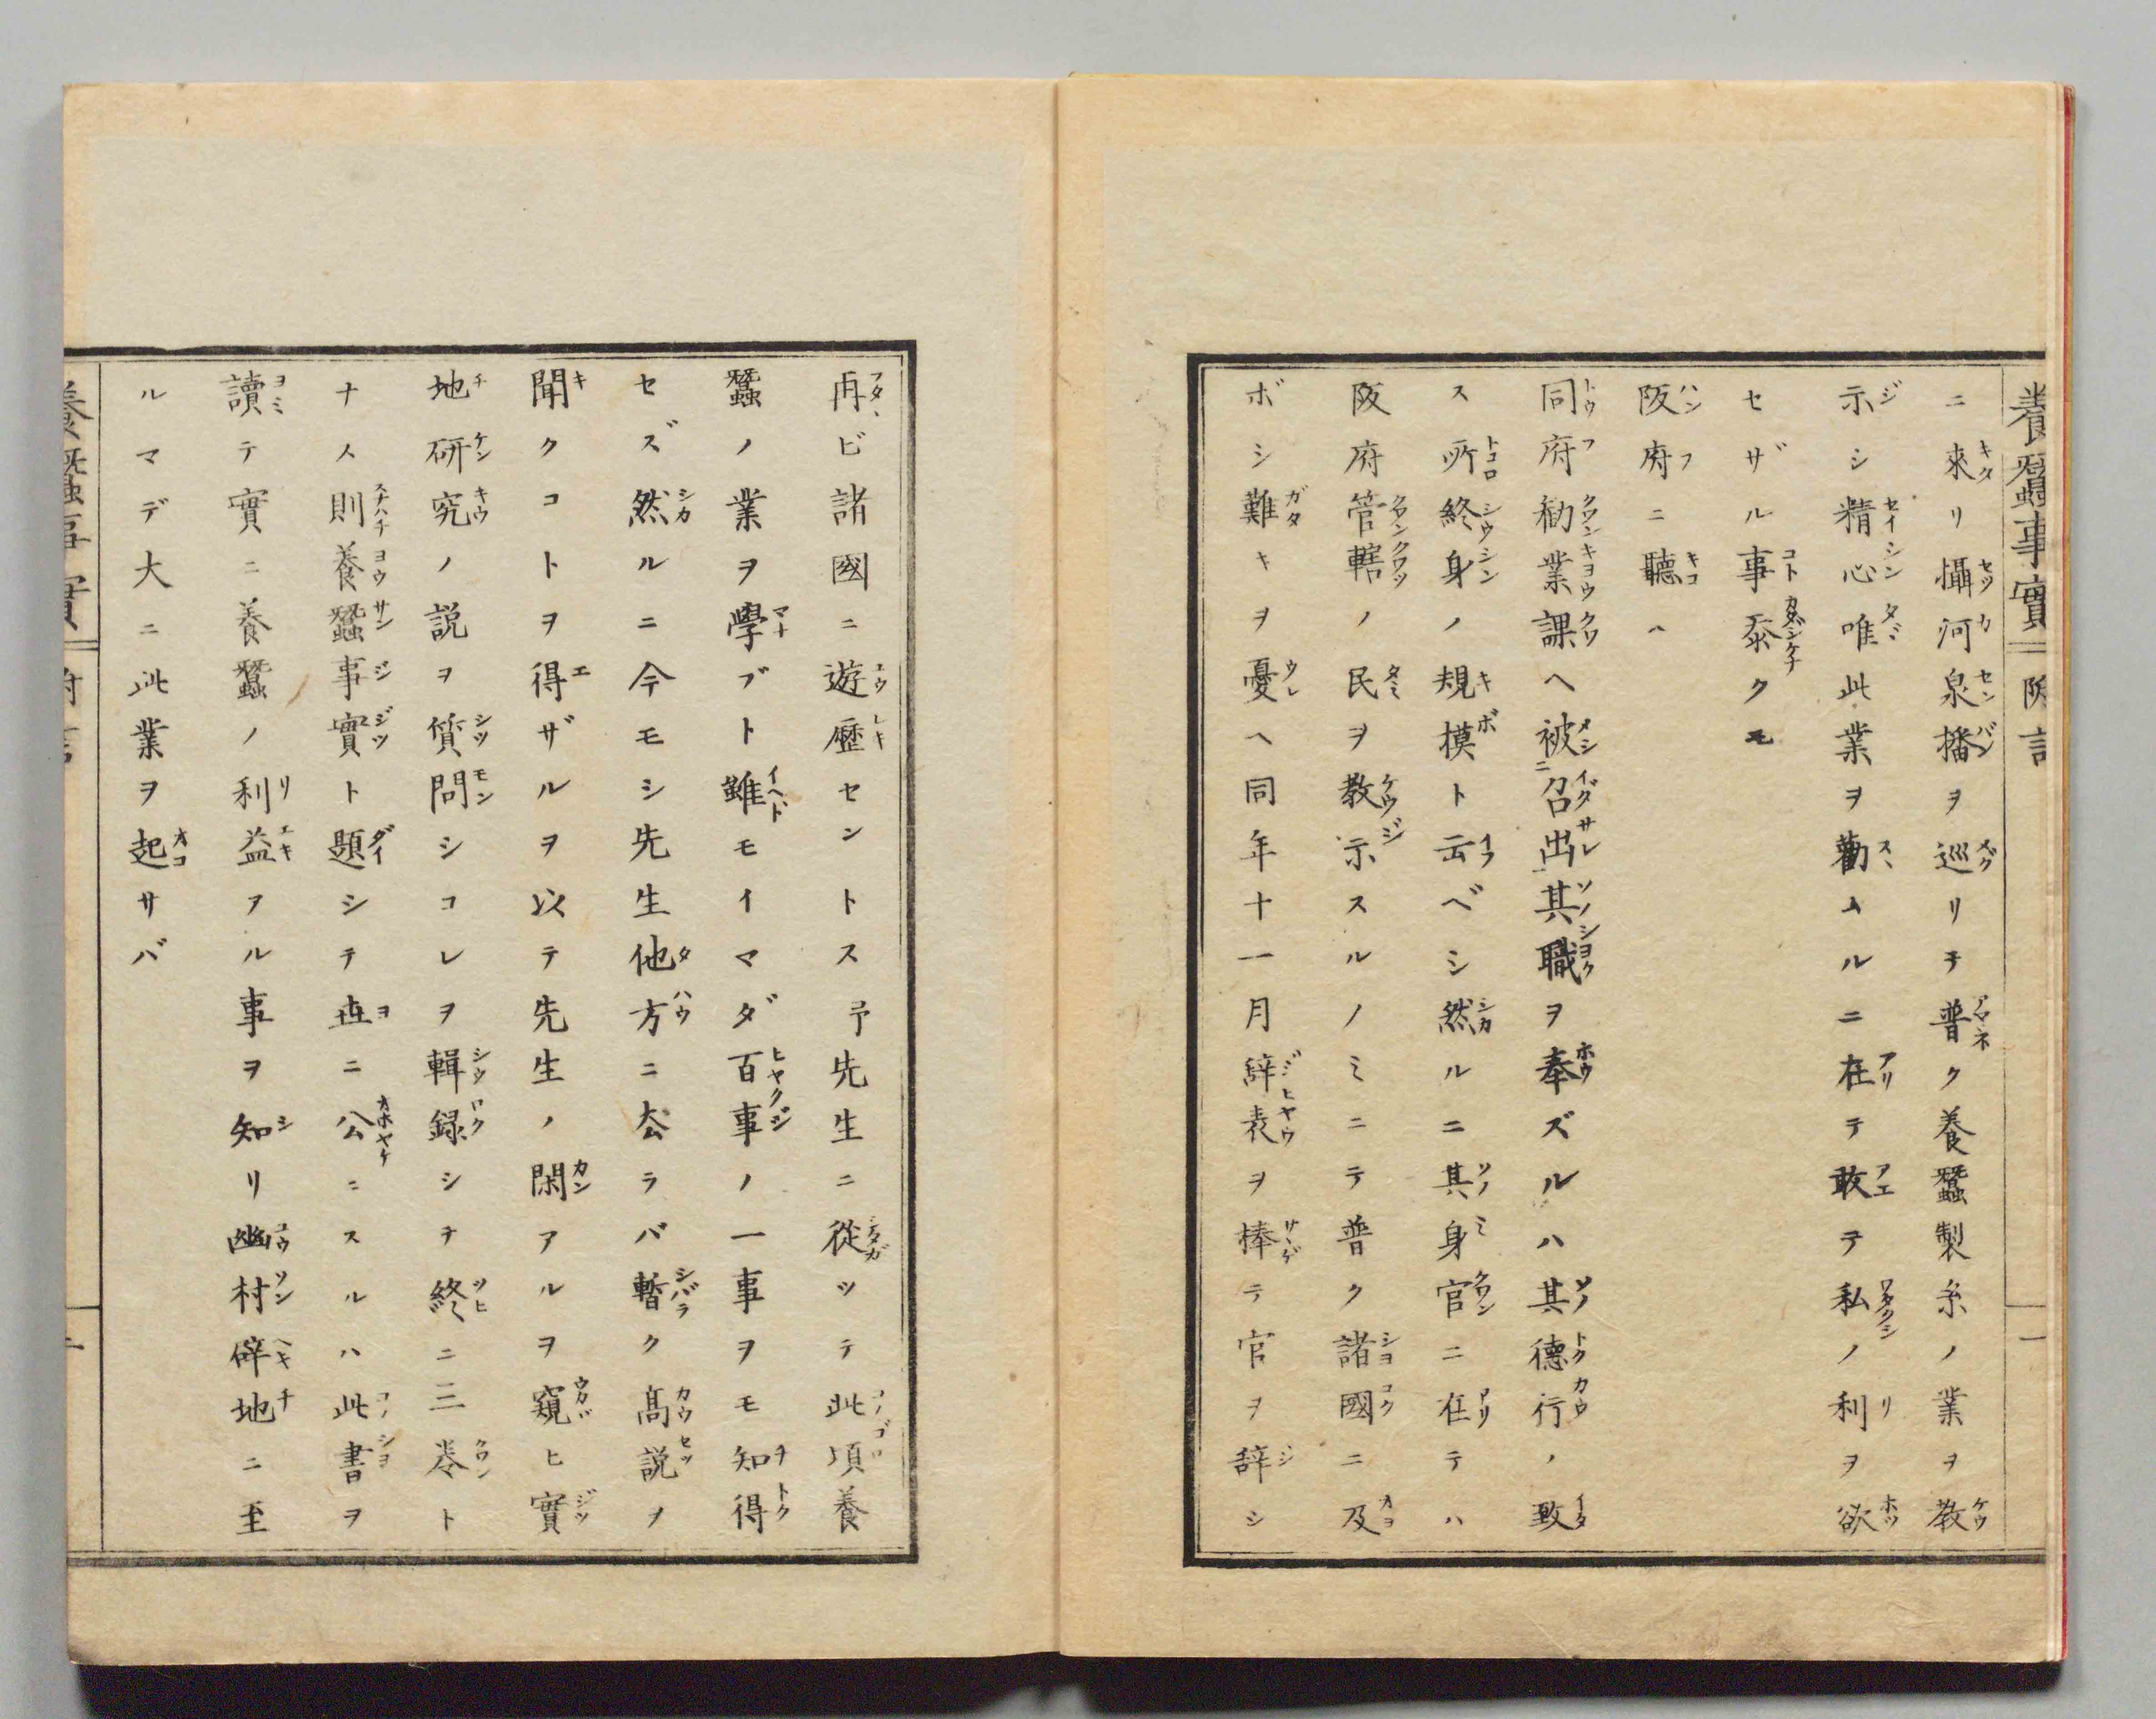 養蠶事實
附言
一
ニ來リ懾河泉播ヲ巡リテ普ク養蠶製糸ノ業ヲ教
示シ精心唯此業ヲ勸ムルニ在テ敢テ私ノ利ヲ欲
セザル事忝クモ
阪府ニ聽ハ
同府勧業課ヘ被召出其職ヲ奉ズルハ其德行ノ致
ス所終身ノ規模ト云ベシ然ルニ其身官ニ在テハ
阪府管轄ノ民ヲ教示スルノミニテ普ク諸國ニ及
ボシ難キヲ憂ヘ同年十一月辭表ヲ捧テ官ヲ辞シ
再ビ諸國ニ遊歷セントス予先生ニ從ツテ此頃養
蠶ノ業ヲ學ブト雖モイマダ百事ノ一事ヲモ知得
セズ然ルニ今モシ先生他方ニ去ラバ暫ク髙説ヲ
聞クコトヲ得ザルヲ以テ先生ノ閑アルヲ窺ヒ實
地研究ノ説ヲ質問シコレヲ輯録シテ終ニ三巻ト
ナス則養蠶事實ト題シテ世ニ公ニスルハ此書ヲ
讀テ實ニ養蠶ノ利益アル事ヲ知リ幽村僻地ニ至
ルマデ大ニ此業ヲ起サバ
養蠶事實